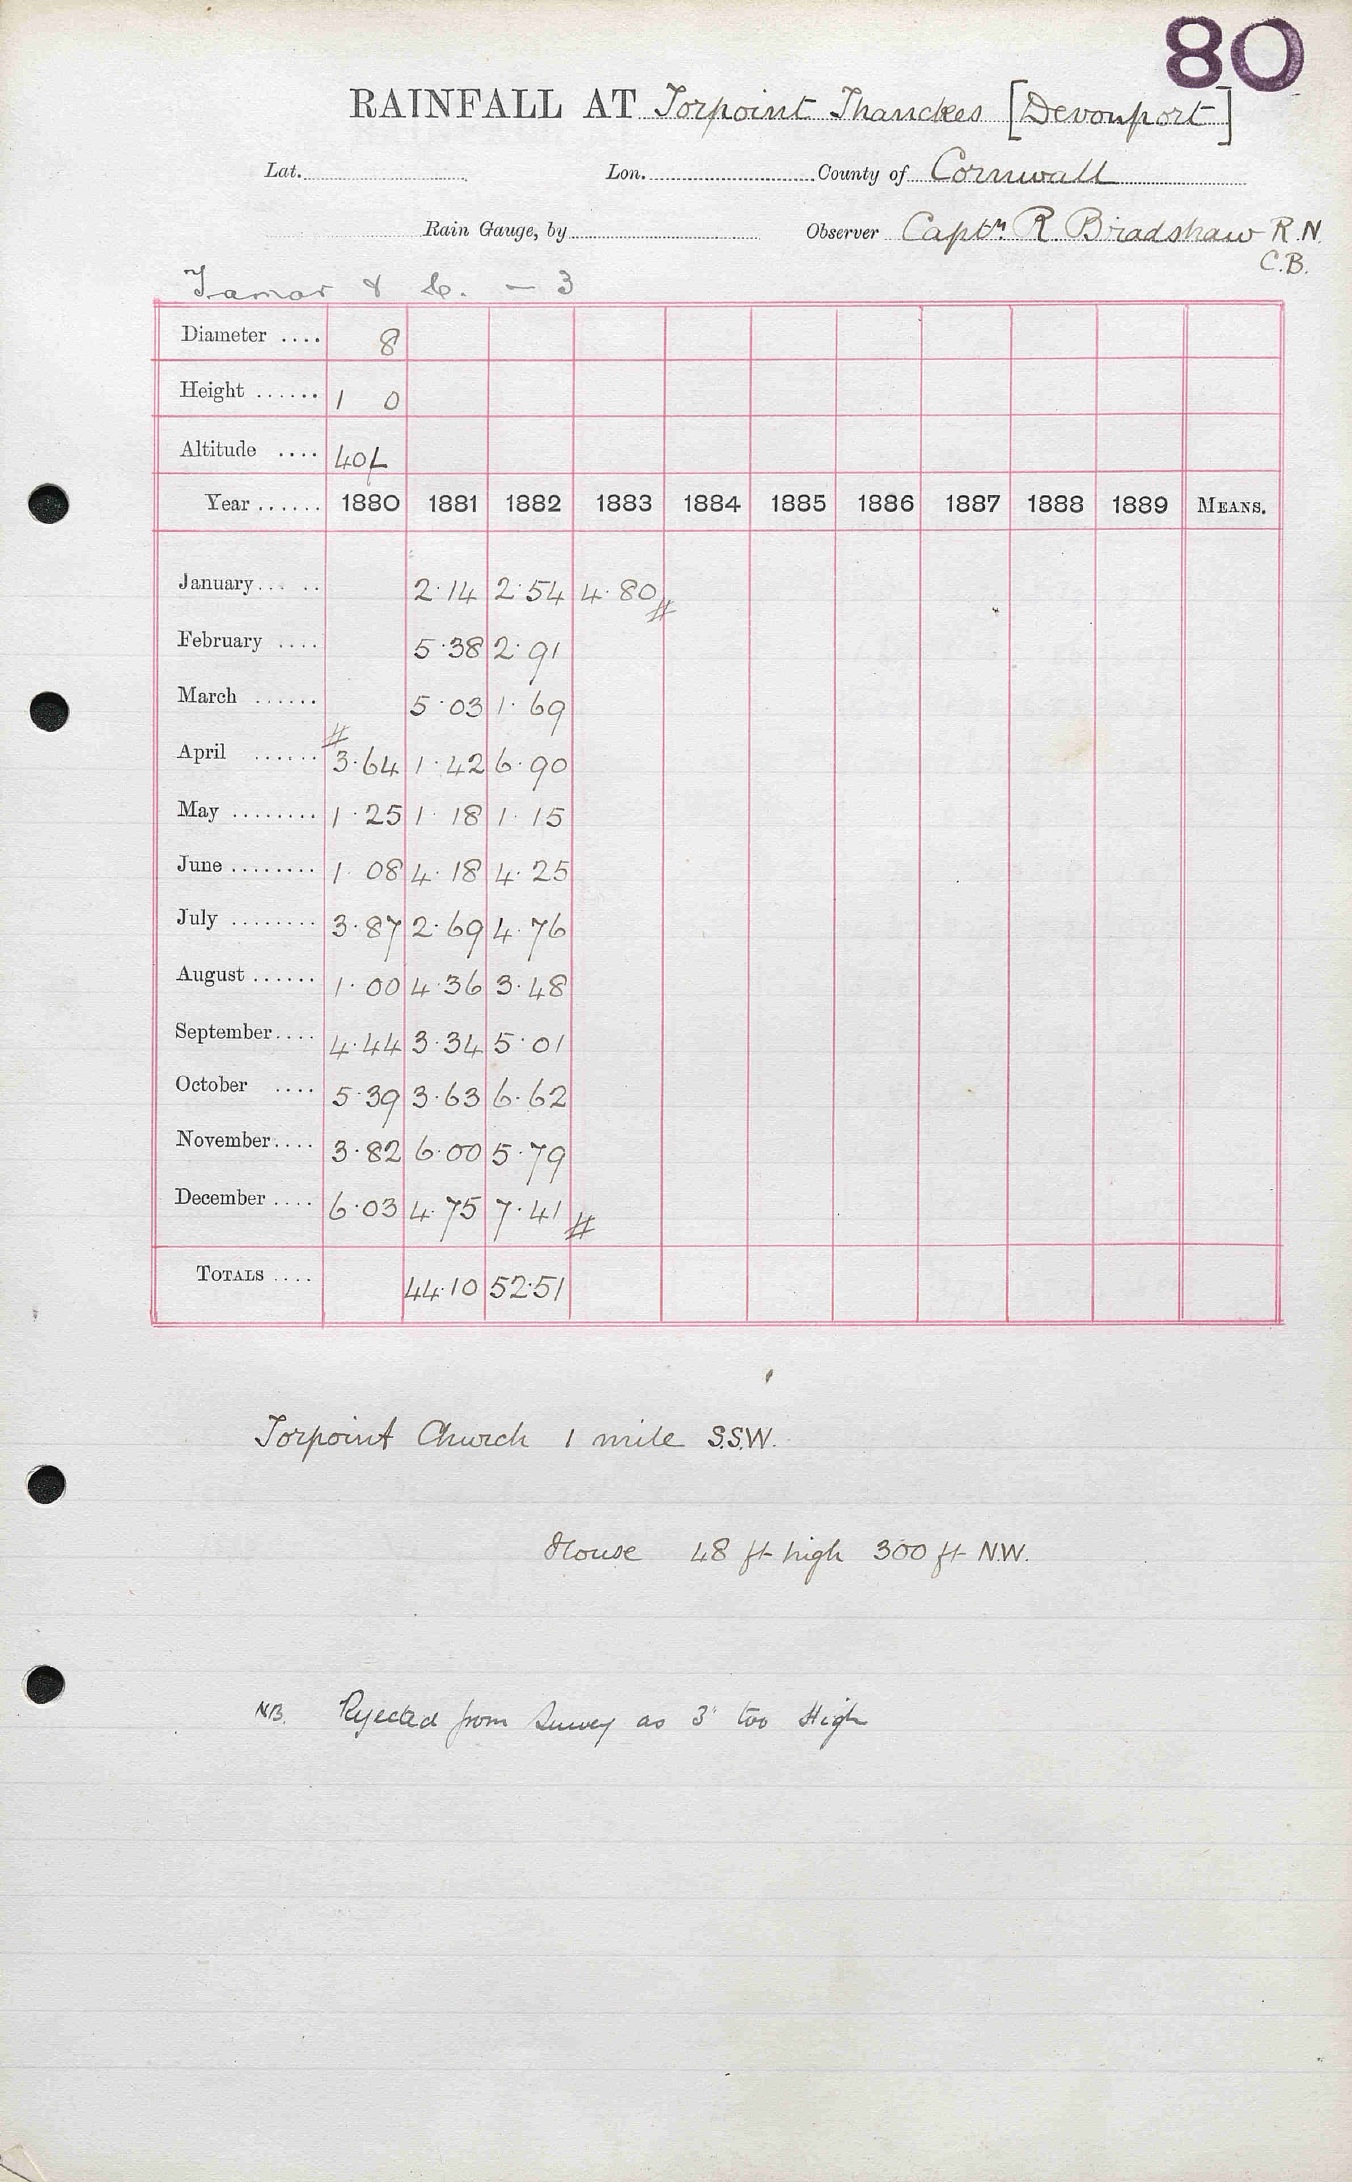 80
RAINFALL AT Torpoint Thanckes [Devonport]
Lat. Lon. County of Cornwall
Rain Gauge, by Observer Captn. R Bradshaw R.N.
C.B.
Tamar & — 3
Diameter .... 8
Height ...... 1 0
Altitude .... 40
Year ...... 1880 1881 1882 1883 1884 1885 1886 1887 1888 1889 MEANS.
January ... .. 2.14 2.54 4.80 #
February .... 5.38 2.91
March ...... 5.03 1.69
#
April ...... 3.64 1.42 6.90
May ........ 1.25 1.18 1.15
June ........ 1.08 4.18 4.25
July ........ 3.87 2.69 4.76
August ...... 1.00 4.36 3.48
September.... 4.44 3.34 5.01
October .... 5.39 3.63 6.62
November.... 3.82 6.00 5.79
December .... 6.03 4.75 7.41 #
TOTALS .... 44.10 52.51
Torpoint Church 1 mile S.S.W.
House 48 ft high 300 ft N.W.
NB. Rejected from Survey as 3" too High